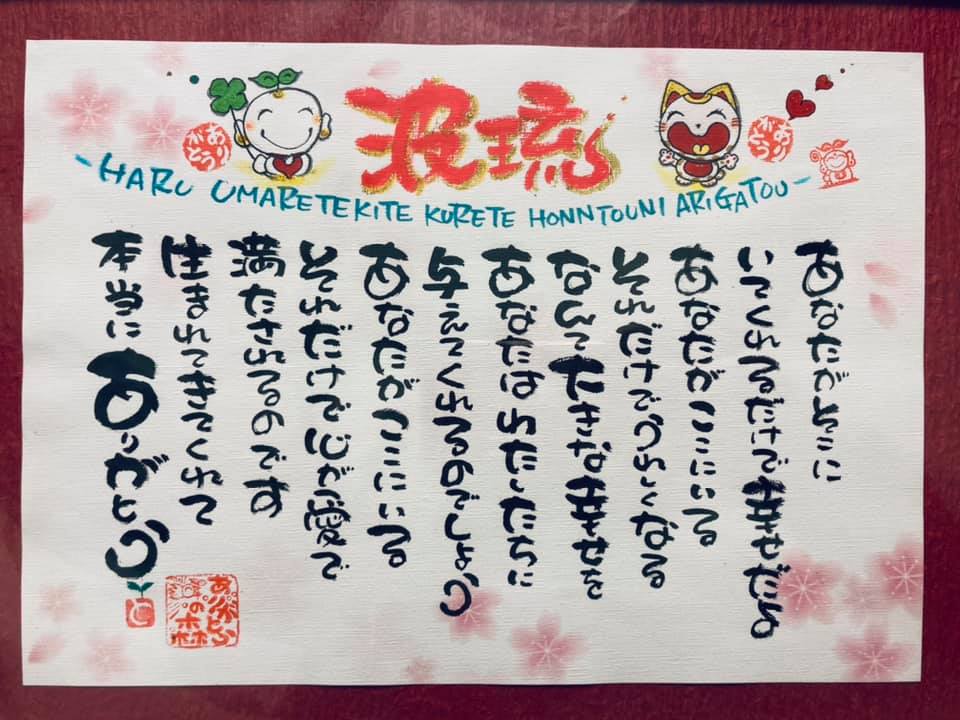 波琉
-HARU UMARETEKITE KURETE HONNTOUNI ARIGATOU-
あなたがそこに
いてくれるだけで幸せだよ
あなたがここにいる
それだけでうれしくなる
なんて大きな幸せを
あなたはわたしたちに
与えてくれるのでしょう
あなたがここにいる
それだけで心が愛で
満たされるのです
生まれてきてくれて
本当にありがとう
ありがとう
の森